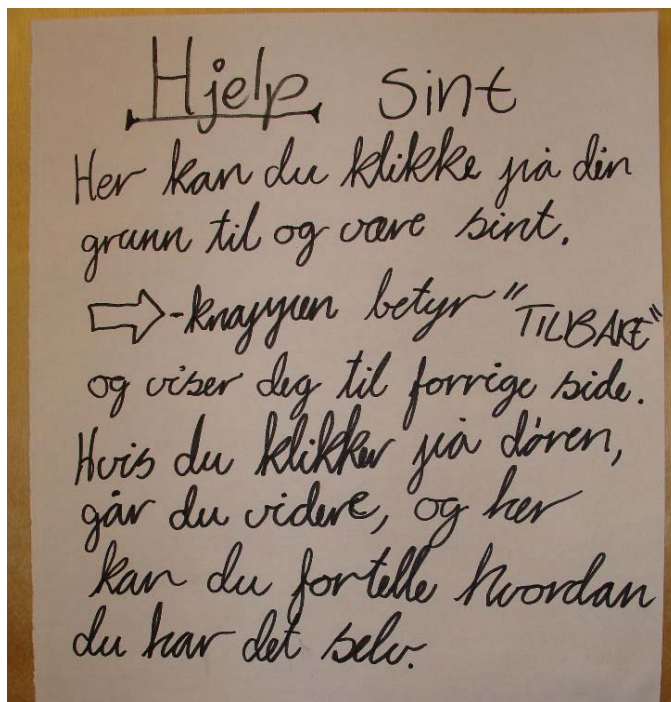 Hjelp sint
Her kan du klikke på din
grunn til og være sint.
⇨-knappen betyr "TILBAKE"
og viser deg til forrige side.
Hvis du klikker på døren,
går du videre, og her
kan du fortelle hvordan
du har det selv.